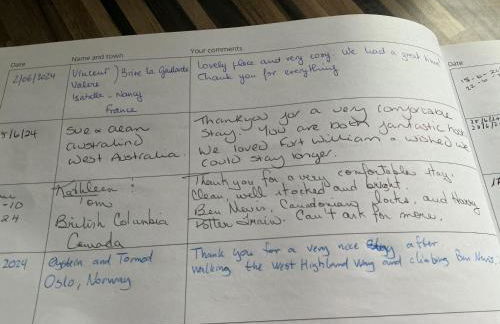 Date Name and town Your comments
2/06/2024 Vincent Brive la Gaillarde Lovely place and very cosy. We had a great time
Valerie Thank you for everything
Isabelle - Nancy
France
5/6/24 Sue & Dean Thankyou for a very comfortable
Australind stay. You are both fantastic hosts
West Australia. We loved Fort William & wished we
could stay longer.
Kathleen & Thank you for a very comfortable stay.
-10 Tom Clean, well stocked and bright.
24 British Columbia Ben Nevis, Caledonian Locks, and Harry
Canada Potter Train. Can't ask for more.
2024 Øystein and Tormod Thank you for a very nice stay after
Oslo, Norway walking the West Highland Way and climbing Ben Nevis.
Date